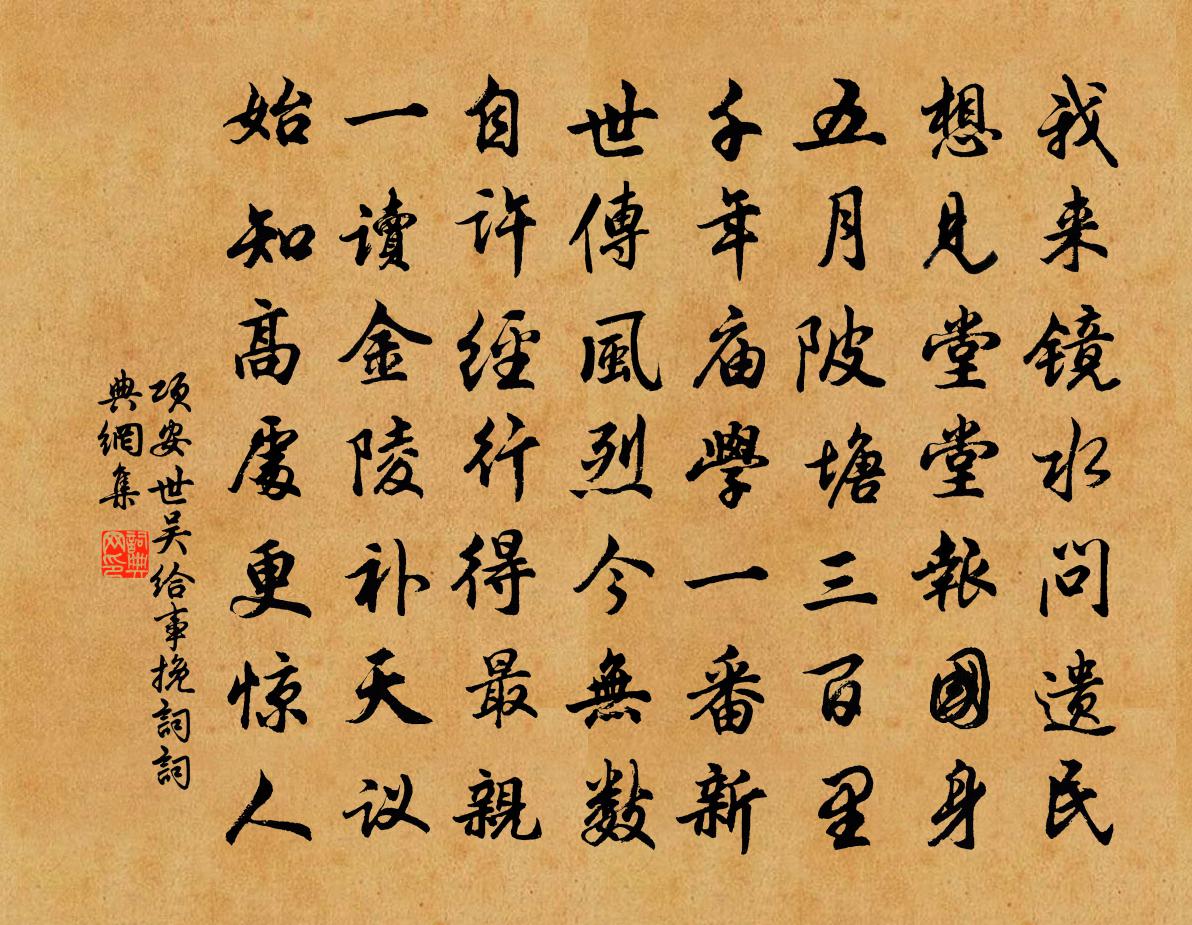 我来镜水问遗民
想見堂堂報國身
五月陂塘三百里
千年庙學一番新
世傳風烈今無数
自许經行得最親
一讀金陵补天议
始知高處更惊人
项安世吴给事挽詞詞
典網集
詞典
网印